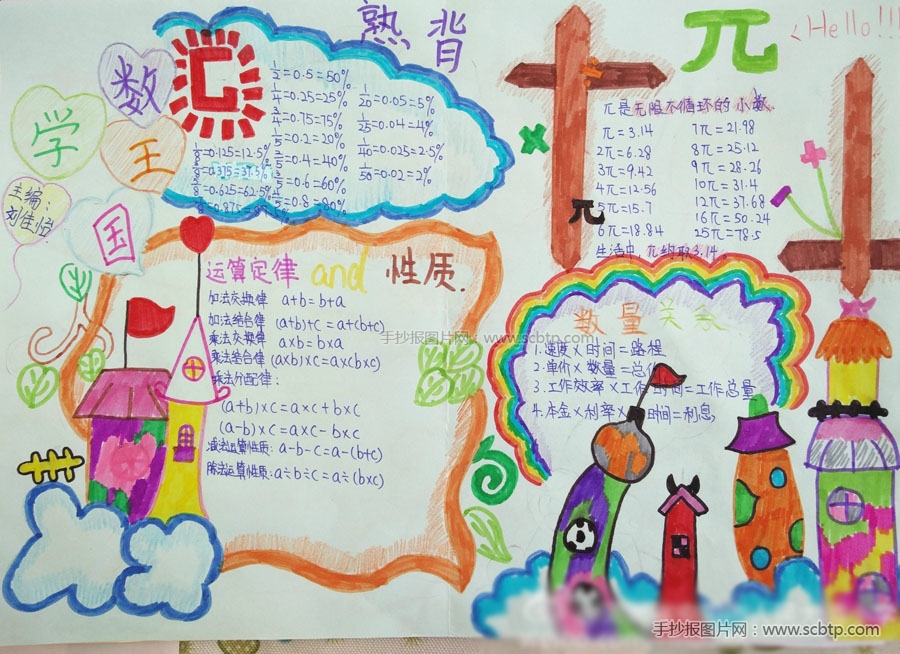 熟背
数
学
王
国
主编：
刘佳怡
1/2=0.5=50%
1/4=0.25=25%
3/4=0.75=75%
1/5=0.2=20%
2/5=0.4=40%
3/5=0.6=60%
4/5=0.8=80%
1/8=0.125=12.5%
3/8=0.375=37.5%
5/8=0.625=62.5%
1/20=0.05=5%
1/25=0.04=4%
1/40=0.025=2.5%
1/50=0.02=2%
π
Hello!!!
π是无限不循环的小数
π=3.14
2π=6.28
3π=9.42
4π=12.56
5π=15.7
6π=18.84
7π=21.98
8π=25.12
9π=28.26
10π=31.4
12π=37.68
16π=50.24
25π=78.5
生活中，π约取3.14。
π
运算定律 and 性质.
加法交换律 a+b=b+a
加法结合律 (a+b)+c=a+(b+c)
乘法交换律 a×b=b×a
乘法结合律 (a×b)×c=a×(b×c)
乘法分配律：
(a+b)×c=a×c+b×c
(a-b)×c=a×c-b×c
减法运算性质：a-b-c=a-(b+c)
除法运算性质：a÷b÷c=a÷(b×c)
数量关系
1.速度×时间=路程
2.单价×数量=总价
3.工作效率×工作时间=工作总量
4.本金×利率×时间=利息
手抄报图片网：www.scbtp.com
手抄报图片网：www.scbtp.com